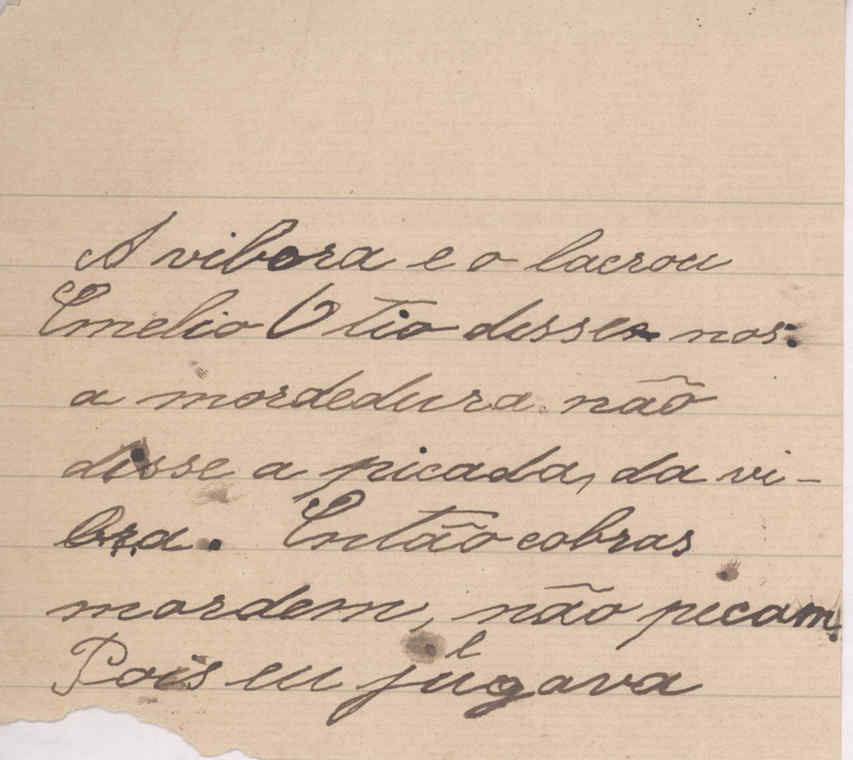 A vibora e o lacrou
Emelio O tio disse nos:
a mordedura não
disse a picada, da vi-
bra. Então cobras
mordem, não picam.
Pois eu julgava